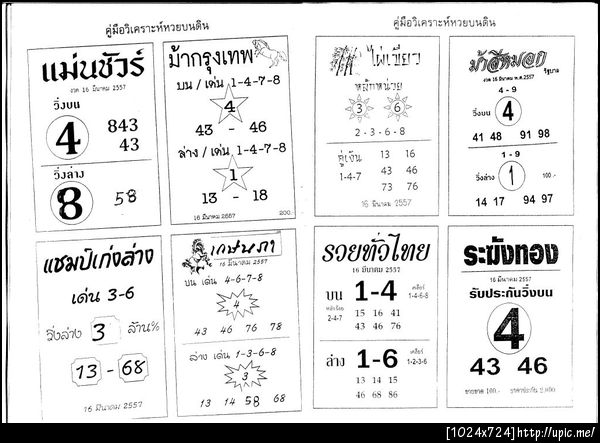 คู่มือวิเคราะห์หวยบนดิน
คู่มือวิเคราะห์หวยบนดิน
แม่นชัวร์
งวด 16 มีนาคม 2557
วิ่งบน
4
843
43
วิ่งล่าง
8
58
ม้ากรุงเทพ
บน / เด่น 1-4-7-8
4
43 - 46
ล่าง / เด่น 1-4-7-8
1
13 - 18
16 มีนาคม 2557
200.
ไผ่เขียว
หลักหน่วย
3 6
2-3-6-8
คู่เงิน
1-4-7
13 16
43 46
73 76
16 มีนาคม 2557
ม้าสีหมอก
งวด 16 มีนาคม พ.ศ.2557
รัฐบาล
4 - 9
วิ่งบน
4
41 48 91 98
1 - 9
วิ่งล่าง
1
100.-
14 17 94 97
แชมป์เก่งล่าง
เด่น 3-6
วิ่งล่าง 3 ล้าน%
13 - 68
16 มีนาคม 2557
เกษนภา
16 มีนาคม 2557
บน เด่น 4-6-7-8
4
43 46 76 78
ล่าง เด่น 1-3-6-8
3
13 14 58 68
รวยทั่วไทย
16 มีนาคม 2557
บน 1-4
เคลียร์
1-4-6-8
หลักร้อย
2-4-7
15 16 41
43 46 76
ล่าง 1-6
เคลียร์
1-2-3-6
13 14 15
46 68 86
ระฆังทอง
16 มีนาคม 2557
รับประกันวิ่งบน
4
43 46
ขายขาด 100.- ราคาประกัน 2,000
[1024x724]http://upic.me/